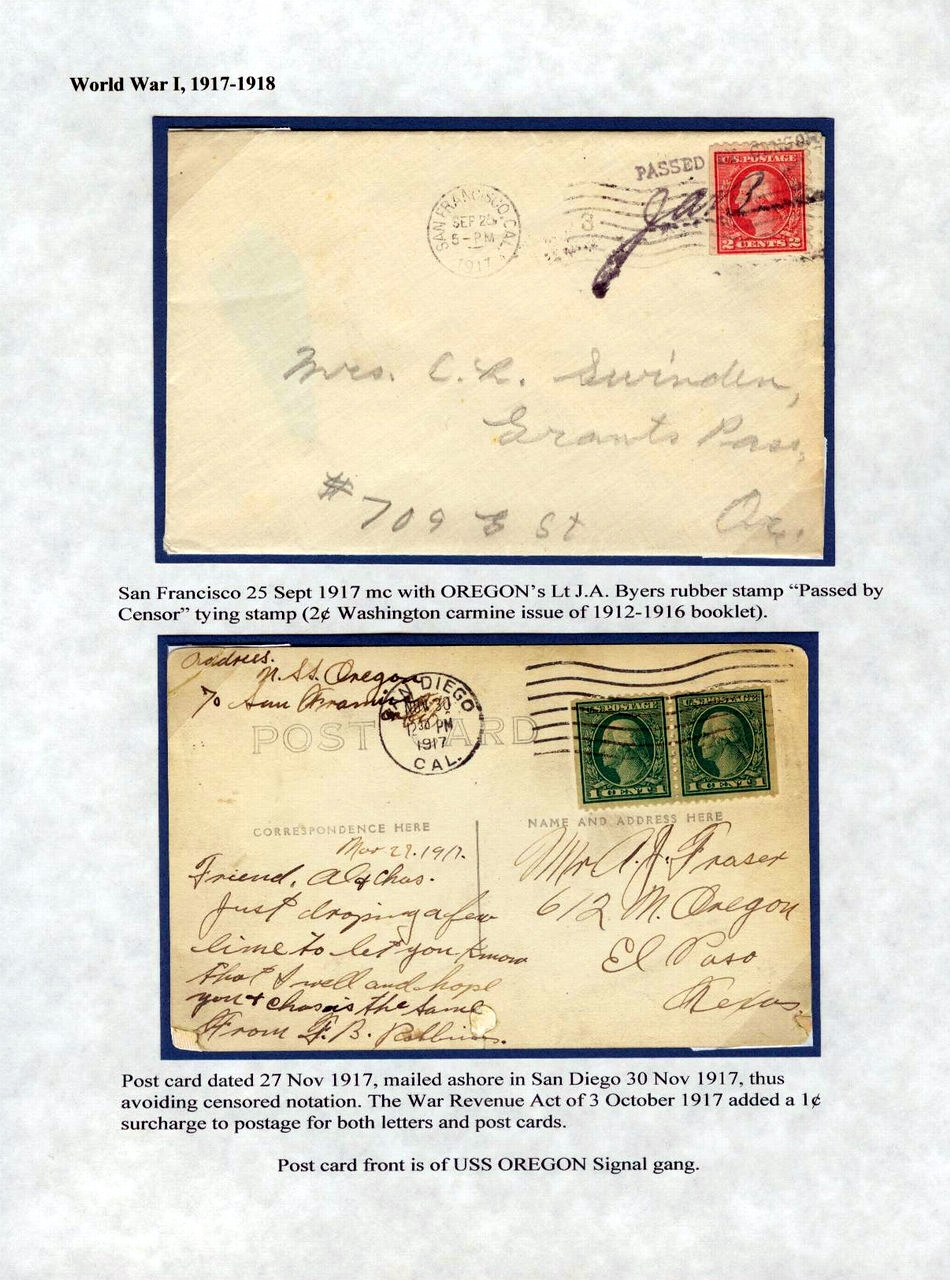 World War I, 1917-1918
PASSED CENSOR
U.S. POSTAGE
2 CENTS 2
SAN FRANCISCO, CAL.
SEP 25
5-PM
1917
JAB
Mrs. C. R. Swinden,
Grants Pass,
# 709 E St Or.
San Francisco 25 Sept 1917 mc with OREGON's Lt J.A. Byers rubber stamp “Passed by
Censor” tying stamp (2¢ Washington carmine issue of 1912-1916 booklet).
Address.
U.S.S. Oregon
% San Fran
SAN DIEGO
NOV 30
1230 PM
1917
CAL.
POST CARD
U.S. POSTAGE U.S. POSTAGE
1 CENT 1 1 CENT 1
CORRESPONDENCE HERE
NAME AND ADDRESS HERE
Nov 27. 1917.
Friend, Al & Chas.
Just droping a few
lime to let you know
that I well and hope
you + chas is the same
From F. B.
Mr A. J. Fraser
612 N. Oregon
El Paso
Texas.
Post card dated 27 Nov 1917, mailed ashore in San Diego 30 Nov 1917, thus
avoiding censored notation. The War Revenue Act of 3 October 1917 added a 1¢
surcharge to postage for both letters and post cards.
Post card front is of USS OREGON Signal gang.